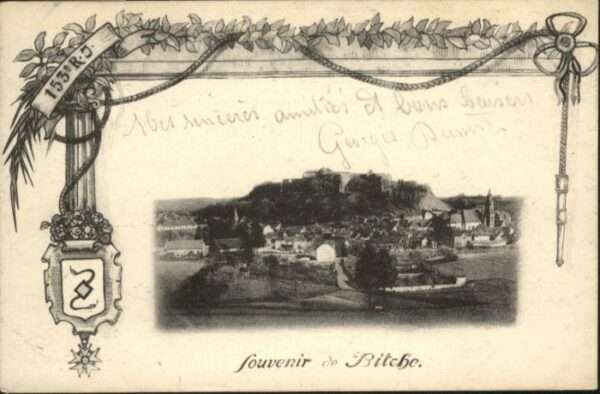 153e R.I.
Mes sincères amitiés et bons baisers
Georges
Souvenir de Bitche.